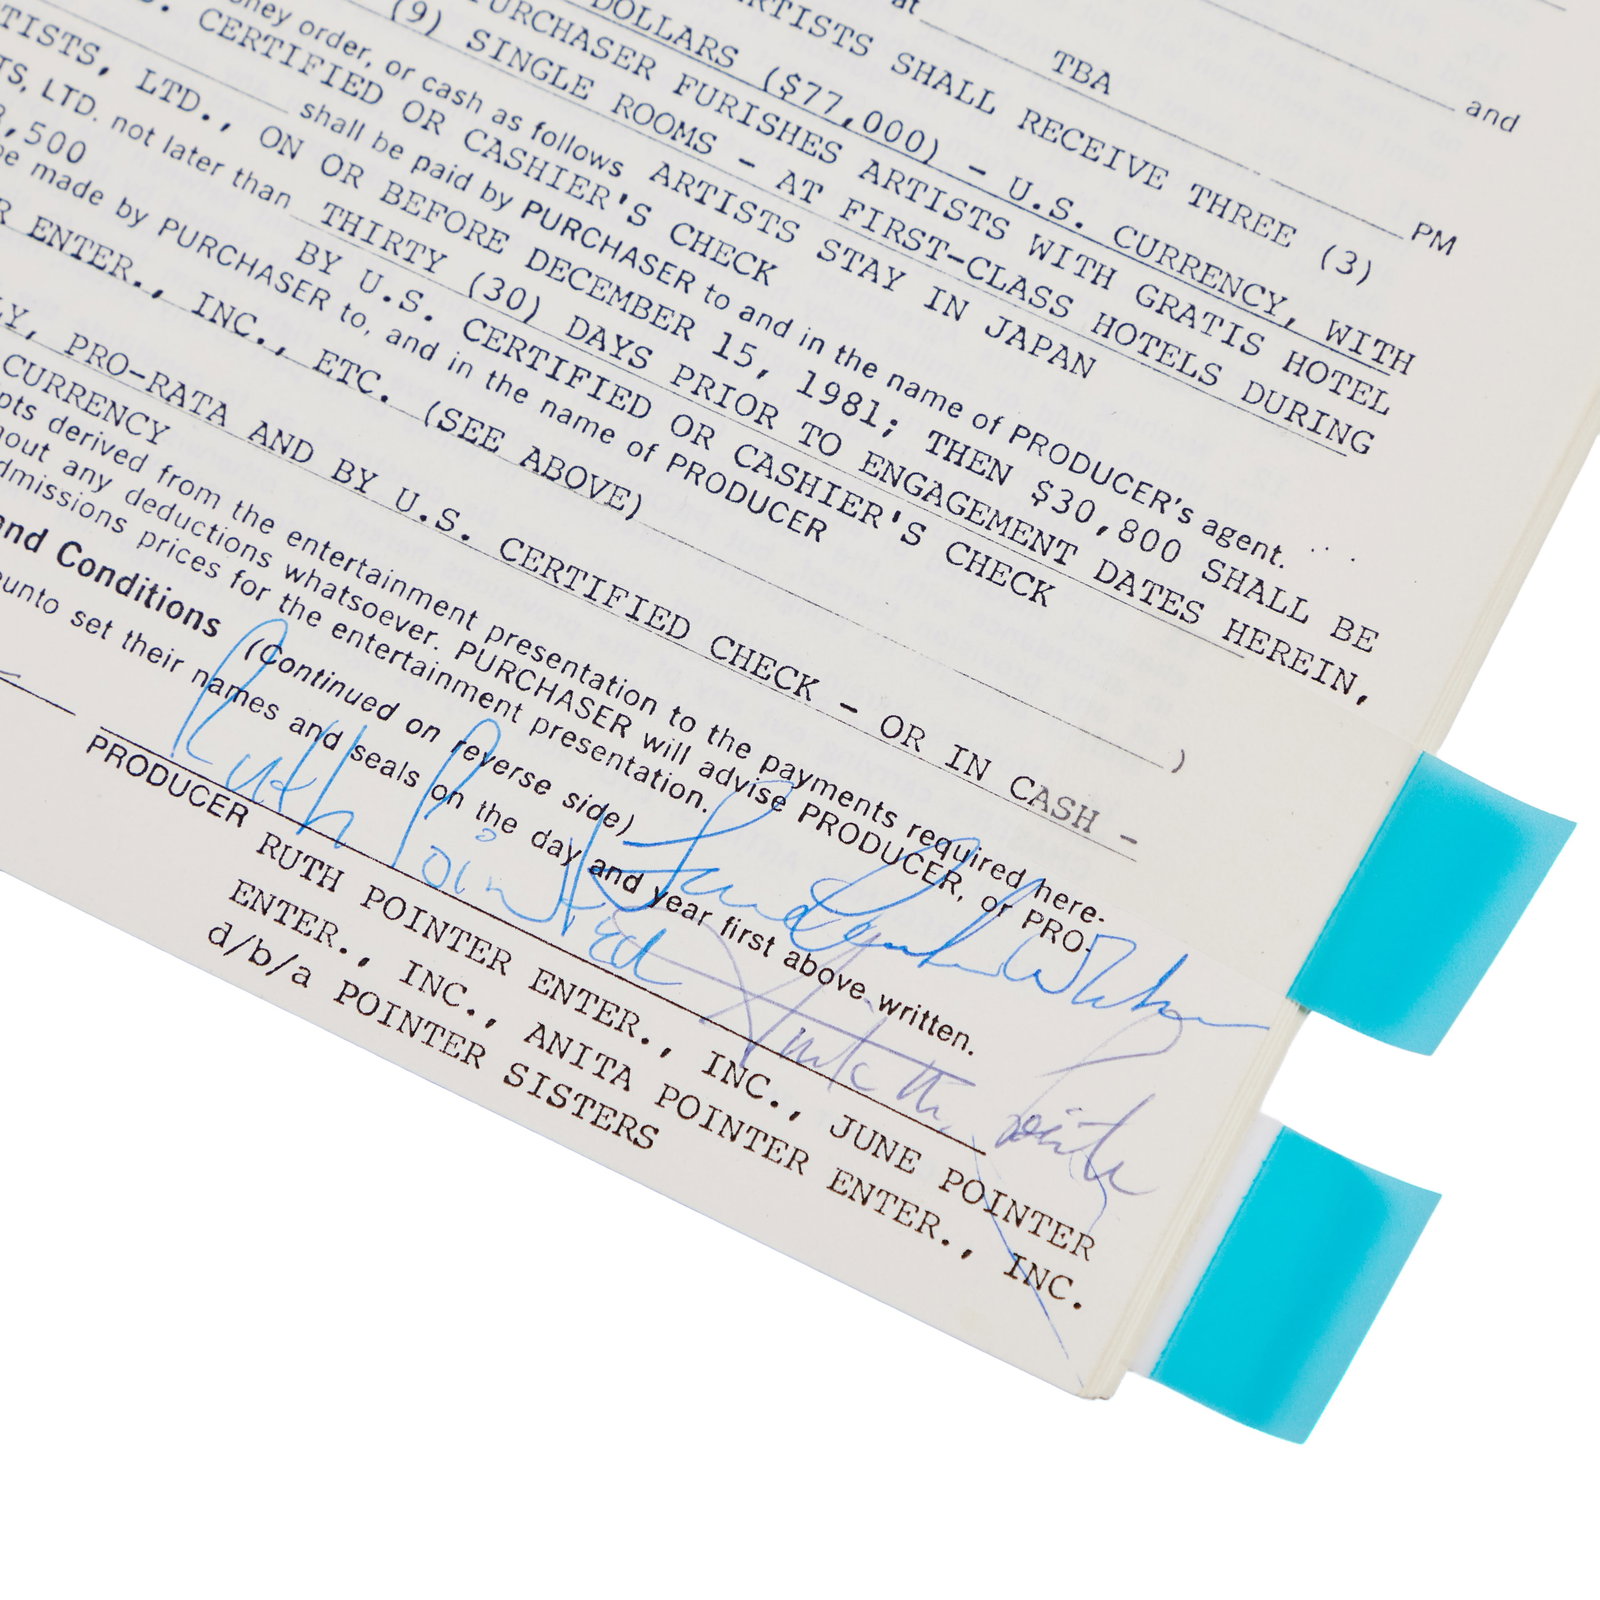 at
and
TBA
PM
ARTISTS SHALL RECEIVE THREE (3)
DOLLARS ($77,000) - U.S. CURRENCY, WITH
PURCHASER FURISHES ARTISTS WITH GRATIS HOTEL
(9) SINGLE ROOMS - AT FIRST-CLASS HOTELS DURING
order, or cash as follows ARTISTS STAY IN JAPAN
CERTIFIED OR CASHIER'S CHECK
shall be paid by PURCHASER to and in the name of PRODUCER's agent.
LTD., ON OR BEFORE DECEMBER 15, 1981; THEN $30,800 SHALL BE
LTD. not later than THIRTY (30) DAYS PRIOR TO ENGAGEMENT DATES HEREIN,
,500 BY U.S. CERTIFIED OR CASHIER'S CHECK
made by PURCHASER to, and in the name of PRODUCER
ENTER., INC., ETC. (SEE ABOVE)
)
PRO-RATA AND BY U.S. CERTIFIED CHECK - OR IN CASH -
CURRENCY
derived from the entertainment presentation to the payments required here-
any deductions whatsoever. PURCHASER will advise PRODUCER, or PRO-
admissions prices for the entertainment presentation.
and Conditions (Continued on reverse side)
set their names and seals on the day and year first above written.
Ruth Pointer
PRODUCER RUTH POINTER ENTER., INC., JUNE POINTER
ENTER., INC., ANITA POINTER ENTER., INC.
d/b/a POINTER SISTERS